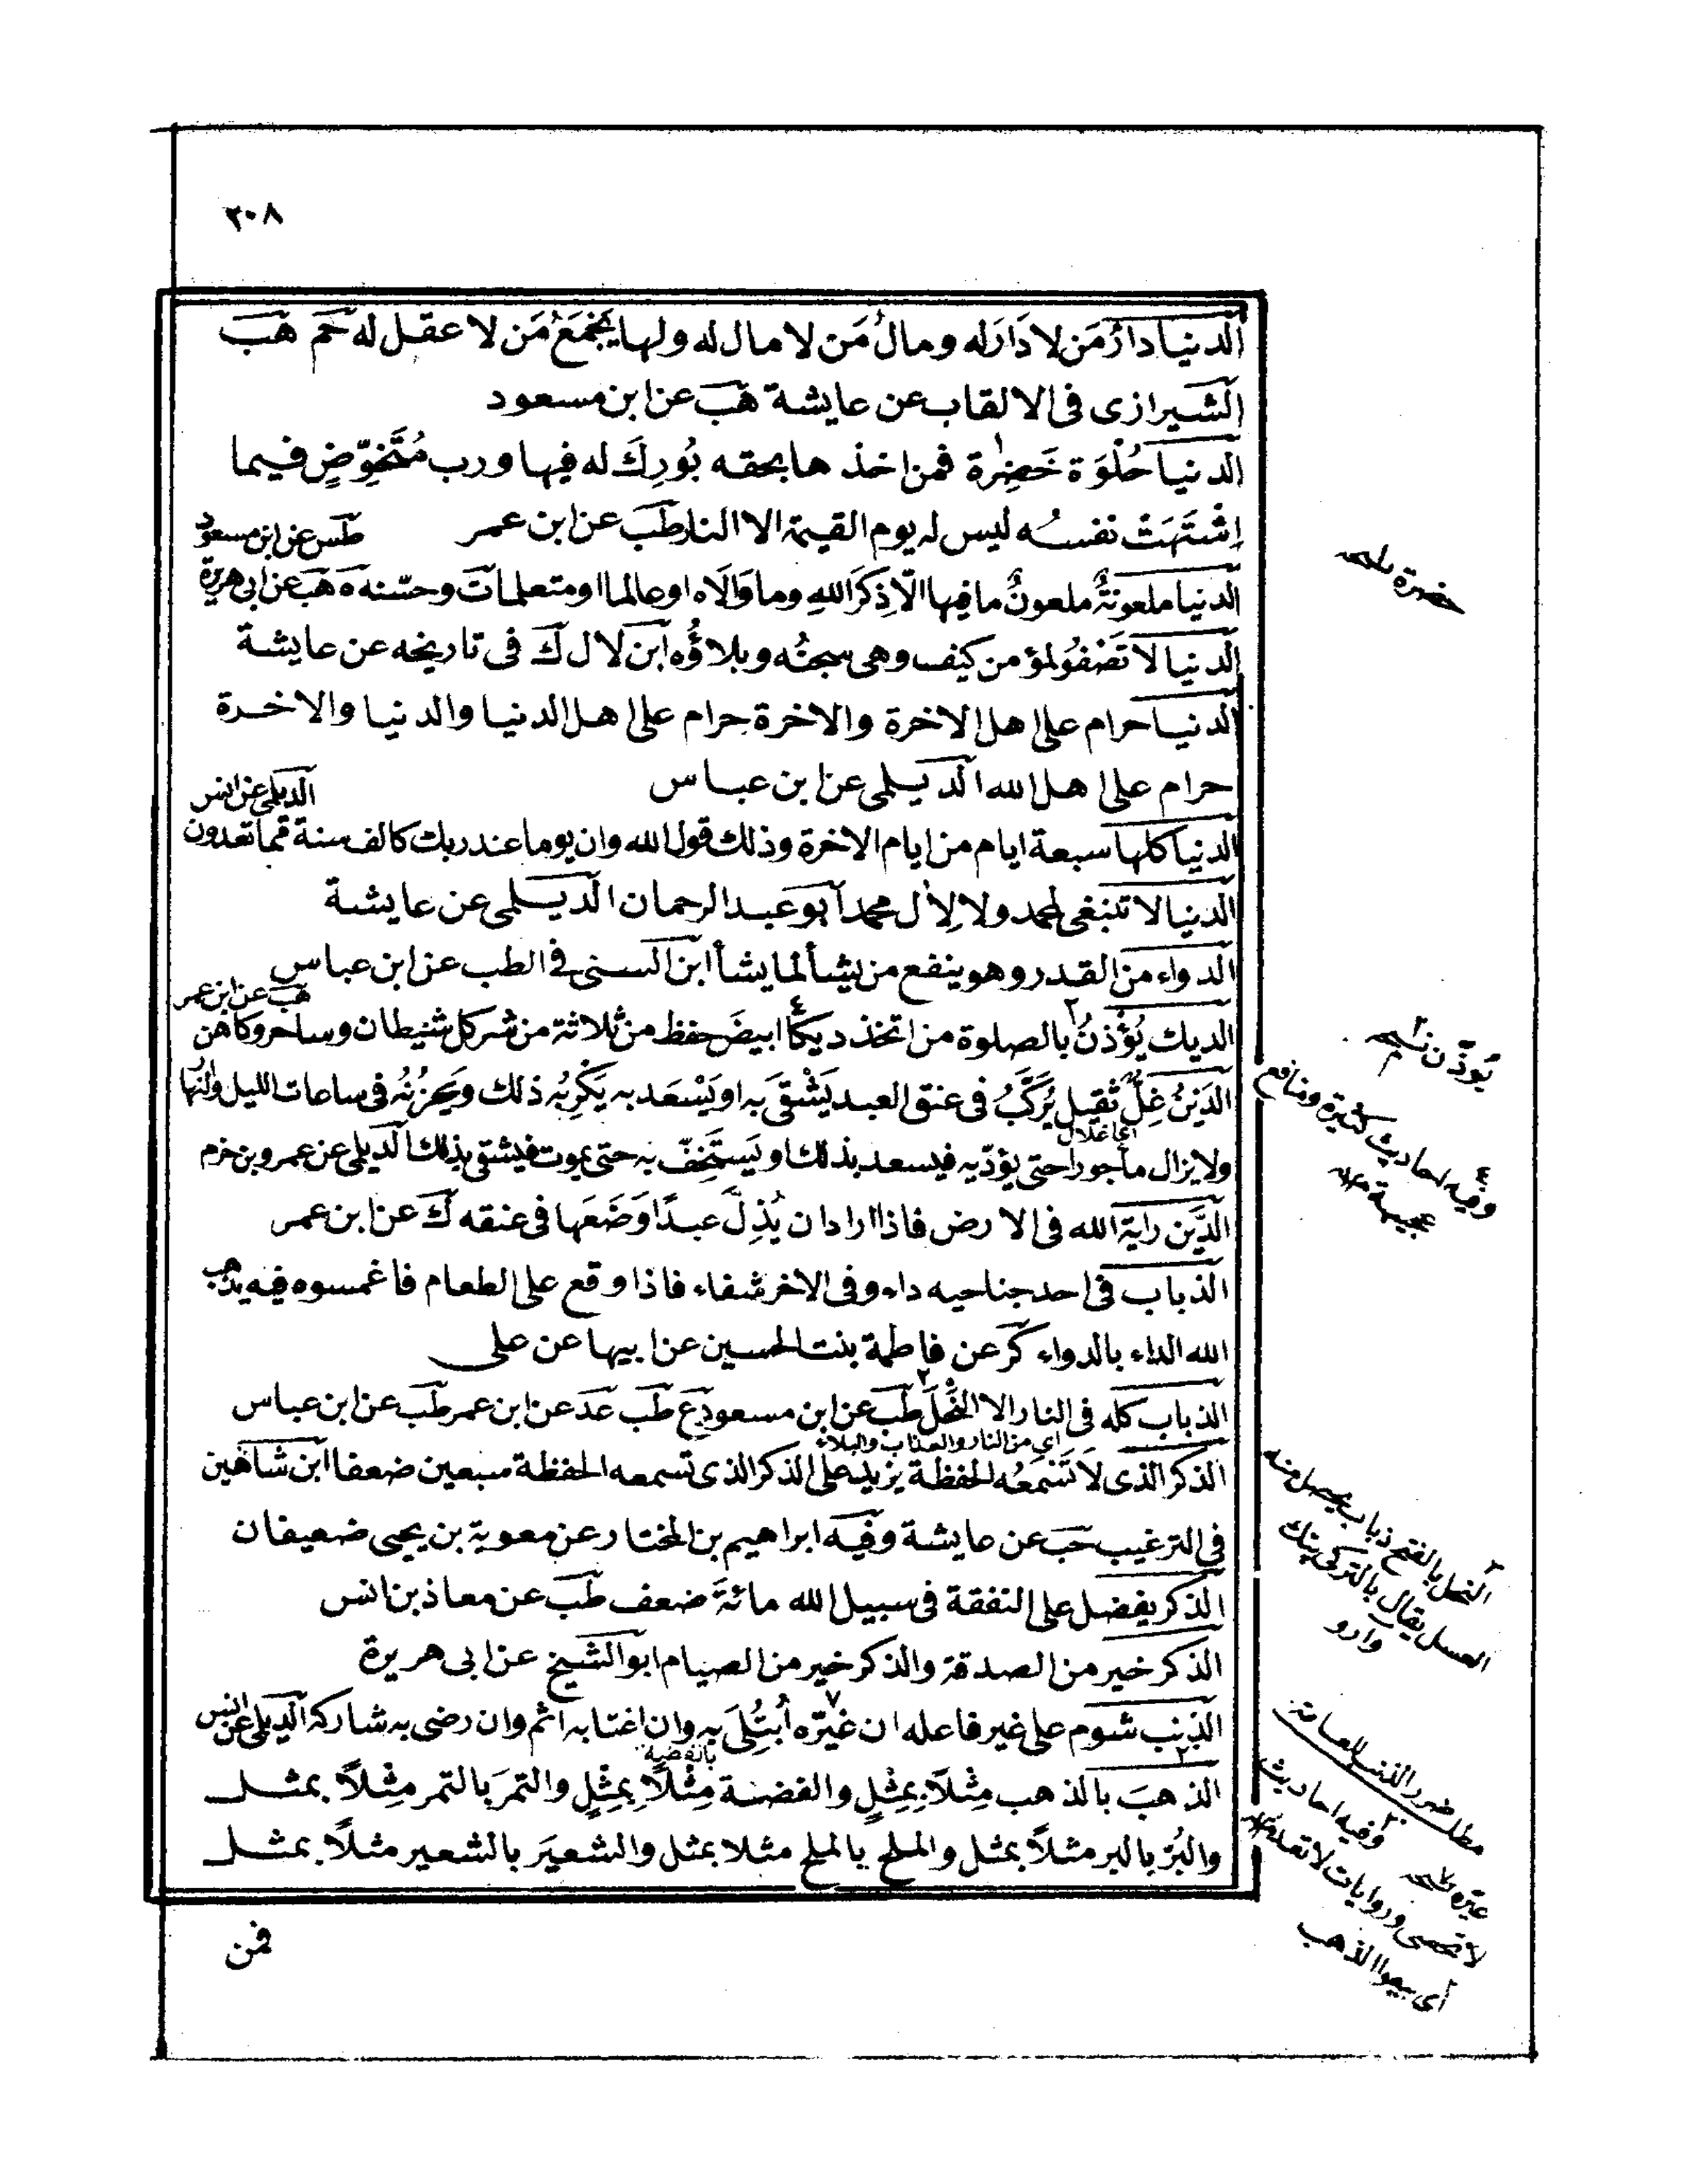 ٣٠٨
الدنيا دارُ مَن لا دَارَ له ومالُ مَن لا مال له ولها يَجْمَعُ مَن لا عقل له حَم هَب
الشيرازى فى الالقاب عن عايشة هَب عن ابن مسعود
الدنيا حُلْوَة خَضِرة فمن اخذ ها بحقه بُورِكَ له فيها ورب مُتَخَوِّضٍ فيما
اِشْتَهَتْ نفسُه ليس له يوم القيمة الا النار طَب عن ابن عمر
طَس عن ابن مسعود
الدنيا ملعونةٌ ملعونٌ ما فيها الّا ذِكرَ اللهِ وما وَالَاه او عالما او متعلما تَ وحسّنه ه هَب عن ابى هريرة
الدنيا لا تَصْفُو لمؤمن كيف وهى سجنُه وبلاؤُه ابن لال ك فى تاريخه عن عايشة
الدنيا حرام على اهل الاخرة والاخرة حرام على اهل الدنيا والدنيا والاخرة
حرام على اهل الله الديلمى عن ابن عباس
الديلمى عن انس
الدنيا كلها سبعة ايام من ايام الاخرة وذلك قول الله وان يوما عند ربك كالف سنة مما تعدون
الدنيا لا تنبغى لمحمد ولا لِاٰل محمد ابو عبد الرحمان الديلمى عن عايشة
الدواء من القدر وهو ينفع من يشأ لما يشأ ابن السنى فى الطب عن ابن عباس
هب عن ابن عمر
الديك يُؤَذنُ بالصلوة من اتخذ ديكًا ابيضَ حفظ من ثلاثة من شر كل شيطان وساحر وكاهن
الدَيْنُ غِلٌّ ثقيل يُرَكَّبُ فى عنق العبد يَشْقَى به او يَسْعَد به يَكْرِبُه ذلك ويَحزُنُه فى ساعات الليل والنُهَا
اى اغلال
ولا يزال مأجورا حتى يؤدّيه فيسعد بذلك او يَستَخِفّ به حتى يموت فيشقى بذلك الديلمى عن عمرو بن حزم
الدَّين راية الله فى الارض فاذا اراد ان يُذِلَّ عبدًا وَضَعَها فى عنقه ك عن ابن عمر
الذباب فى احد جناحيه داء وفى الاخر شفاء فاذا وقع على الطعام فاغمسوه فيه يذهب
الله الداء بالدواء كَرعن فاطمة بنت الحسين عن ابيها عن على
الذباب كله فى النار الا النَّحْلَ طَب عن ابن مسعود ع طَب عَد عن ابن عمر طَب عن ابن عباس
اى من النار والعذاب والبلاء
الذكر الذى لا تَسْمَعُه الحفظة يزيد على الذكر الذى تسمعه الحفظة سبعين ضعفا ابن شاهين
فى الترغيب حَب عن عايشة وفيه ابراهيم بن المختار عن معوية بن يحيى ضعيفان
الذكر يفضل على النفقة فى سبيل الله مائة ضعف طَب عن معاذ بن انس
الذكر خير من الصدقة والذكر خير من الصيام ابو الشيخ عن ابى هريرة
الذنب شوم على غير فاعله ان غيّره أُبتُلِىَ به وان اغتابه اثم وان رضى به شاركه الديلمى عن انس
الذهبَ بالذهب مِثْلاً بِمِثْلٍ والفضة مِثْلًا بِمِثْلٍ والتمرَ بالتمر مِثْلاً بمثل
والبُرَّ بالبر مثلاً بمثل والملح بالملح مثلا بمثل والشعيرَ بالشعير مثلاً بمثل
فمن
خضرة نسخه
يُوذّن نسخه
وفيه احاديث كثيرة ومنافع
عجيبة
النحل بالفتح ذباب يحصل منه
العسل يقال بالتركى بنك
وارو
مطلب ضرر الذنب للعامة
وفيه احاديث
عيّره نسخه
لا تحصى وروايات لا تعد
اى بيعوا الذهب